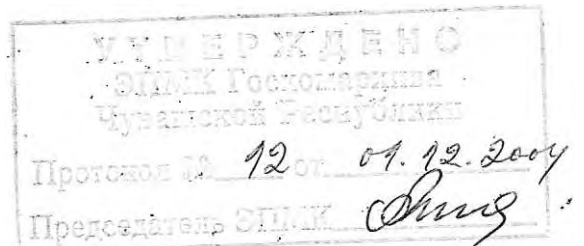 УТВЕРЖДЕНО
ЭПМК Госкомархива
Чувашской Республики
Протокол № 12 от 01.12.2004
Председатель ЭПМК